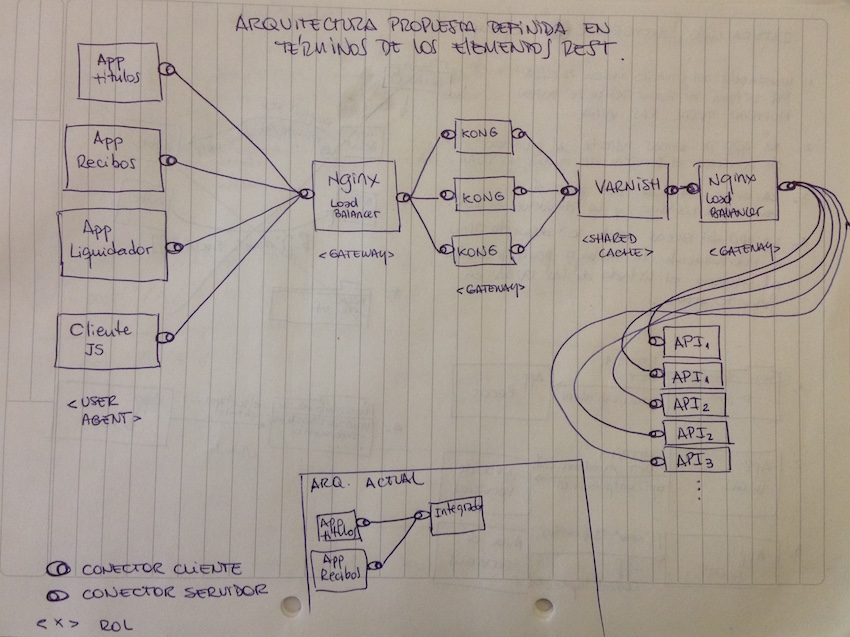 ARQUITECTURA PROPUESTA DEFINIDA EN
TÉRMINOS DE LOS ELEMENTOS REST.
App
títulos
App
Recibos
App
Liquidador
Cliente
JS
<USER
AGENT>
Nginx
LOAD
BALANCER
<GATEWAY>
KONG
KONG
KONG
<GATEWAY>
VARNISH
<SHARED
CACHE>
Nginx
LOAD
BALANCER
<GATEWAY>
API1
API1
API2
API2
API3
⋮
ARQ. ACTUAL
App
títulos
App
Recibos
CONECTOR CLIENTE
CONECTOR SERVIDOR
<X> ROL